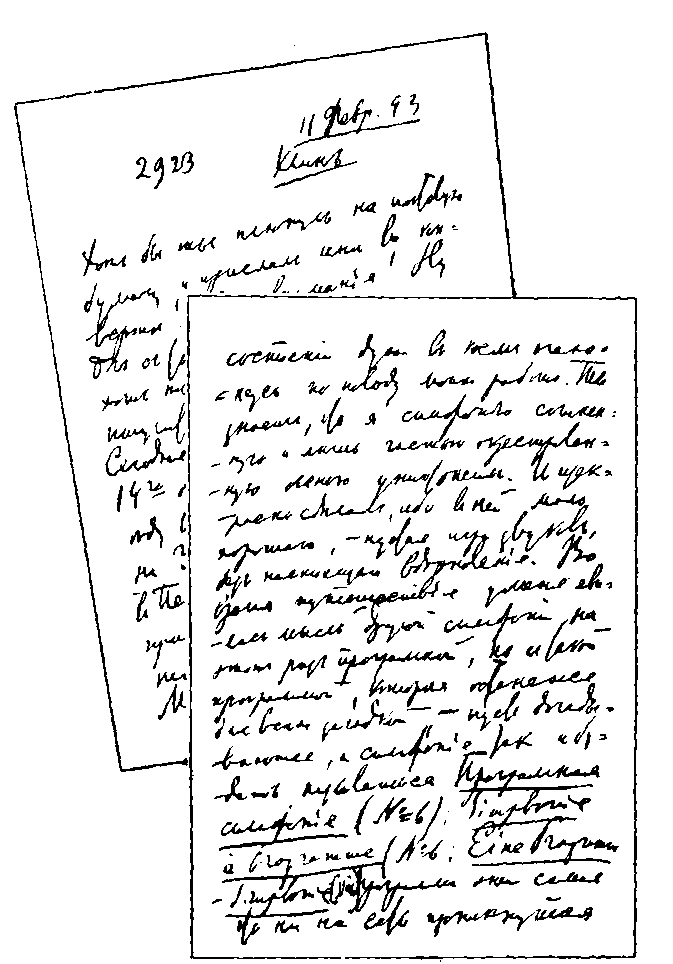 11 Февр. 93
2923
Клинъ
Хоть бы ты плюнулъ на
бумагу и прислалъ мнѣ въ кон-
вертѣ
вниманія! Ну
хоть
Сегодня
14го
на
въ Пе
М
состояніи духа въ коемъ нахо-
-жусь по поводу моихъ работъ. Ты
знаешь, что я симфонію сочинен-
-ную и лишь частью оркестрован-
-ную осенью уничтожилъ. И прек-
-расно сдѣлалъ, ибо въ ней мало
хорошаго, – пустая игра звуковъ,
безъ настоящаго вдохновенія. Во
время путешествія у меня яви-
-лась мысль другой симфоніи, на
этотъ разъ программной, но съ такой
программой, которая останется
для всѣхъ загадкой – пусть догады-
ваются, а симфонія такъ и бу-
-детъ называться Программная
симфонія (№6); Simphonie
à Programme (№6; Eine Programm
-Simphonie программа эта самая
что ни на есть проникнутая